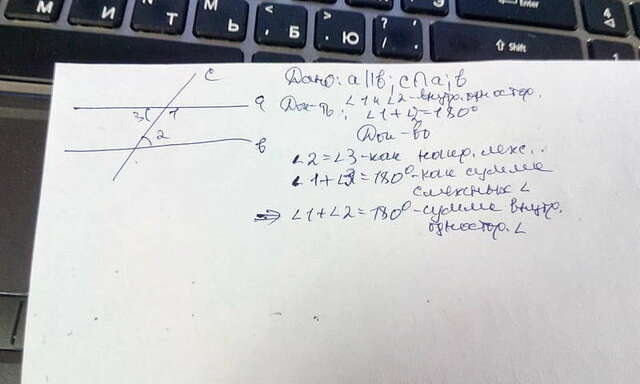 М И Т Ь < , Б > . Ю ? / , Enter
⇧ Shift
4
c
a
3 1
2
в
Дано: a||в; c∩a; в
∠1 и ∠2 - внутр. одностор.
Док-ть: ∠1+∠2=180°
Док-во
∠2=∠3 - как накр. леж..
∠1+∠3=180° - как сумма
смежных ∠
⇒ ∠1+∠2=180° - сумма внутр.
одностор. ∠